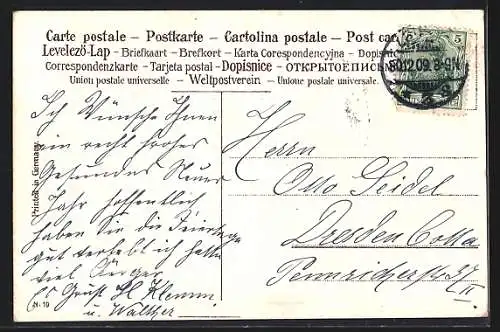 Carte postale – Postkarte – Cartolina postale – Post car
Levelező-Lap – Briefkaart – Brefkort – Karta Corespondencyjna – Dopisnic
Correspondenzkarte – Tarjeta postal – Dopisnice – ОТКРЫТОЕ ПИСЬМ
Union postale universelle – Weltpostverein – Unione postale universale.
5
30.12.09. 8-9N
Printed in Germany.
Ich Wünsche Ihnen
ein recht frohes
Gesundes Neues
Jahr hoffentlich
haben Sie die Feiertage
gut verlebt ich hatte
viel Ärger
Gruß Klemm
u. Walther
N. 19
Herrn
Otto Seidel
Dresden Cotta
Pennricherstr. 37
II